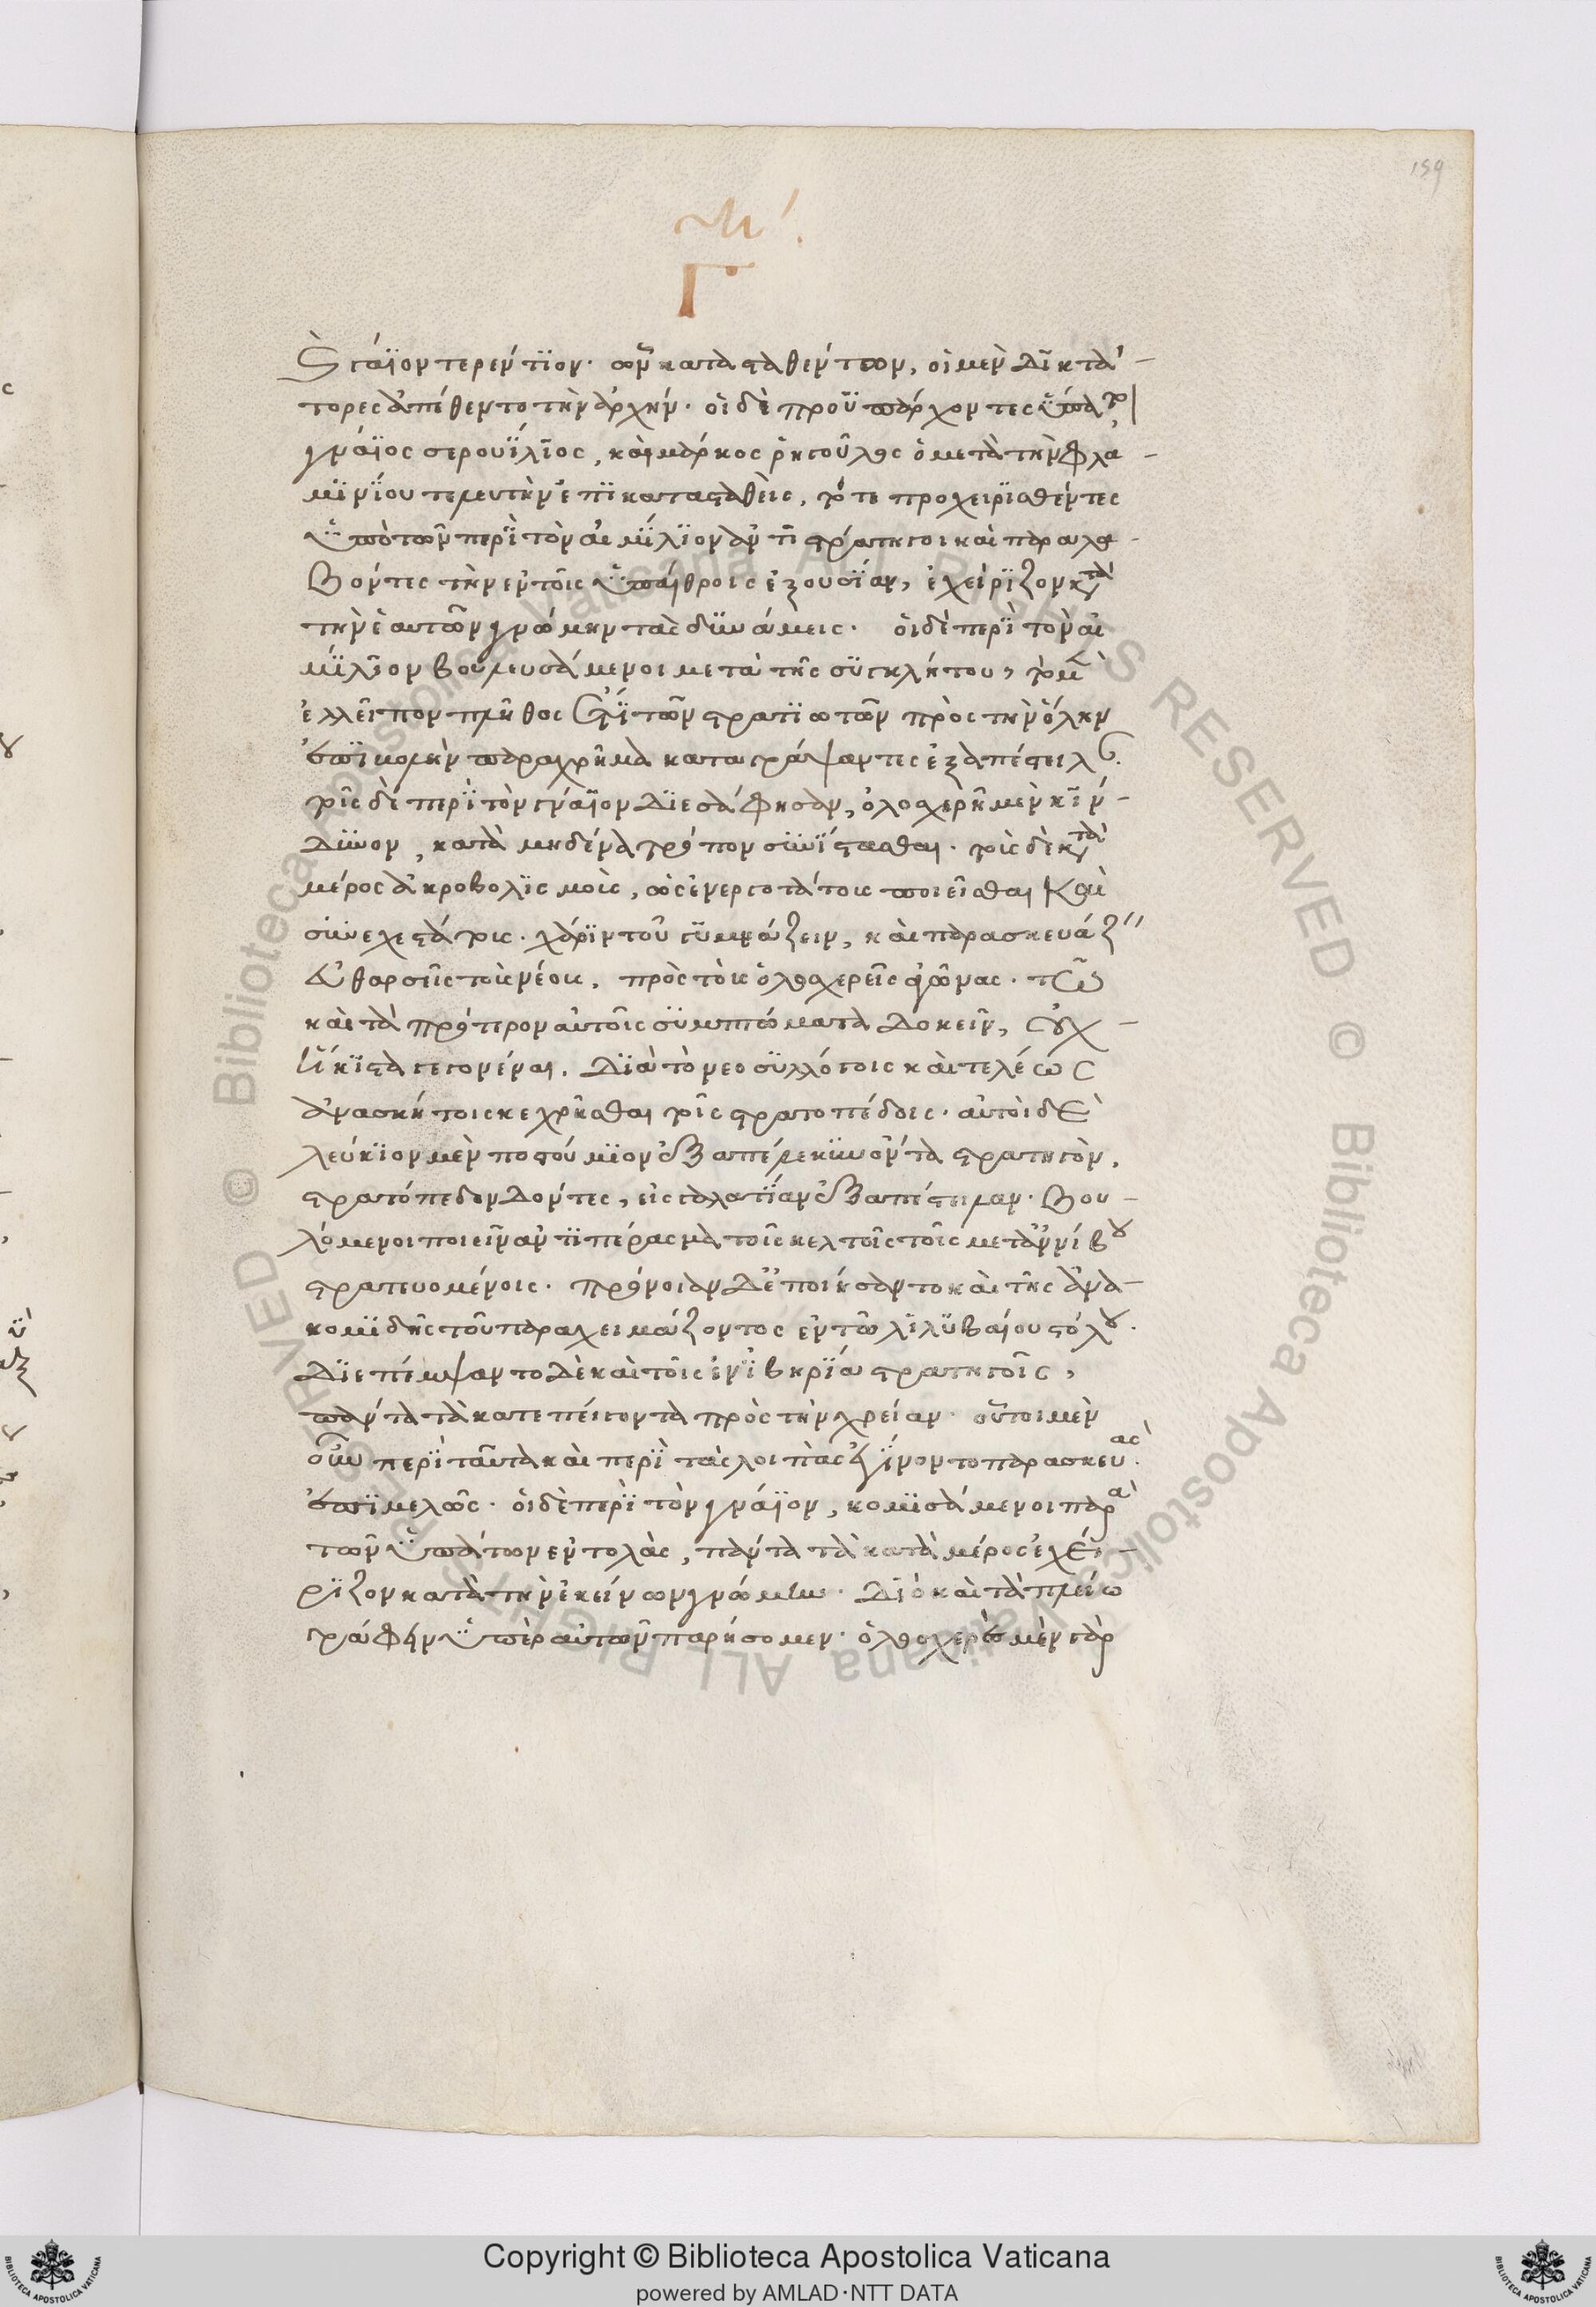 159
Γ
καὶ γάϊον τερέντϊον· ὧν κατασταθέντων, οἱ μὲν δϊκτά-
τορες ἀπέθεντο τὴν ἀρχήν· οἱ δὲ προϋπάρχοντες ὕπατοι
γνάϊος σερουΐλϊος, καὶ μάρκος ῥηγοῦλος ὁ μετὰ τὴν φλα-
μϊνΐου τελευτὴν ἐπϊκατασταθεὶς, τότε προχειρϊσθέντες
ὑπὸ τῶν περὶ τὸν αἰμΐλϊον ἀντϊστράτηγοι καὶ παραλα-
βόντες τὴν ἐν τοῖς ὑπαίθροις ἐξουσΐαν, ἐχείρϊζον κατὰ
τὴν ἑαυτῶν γνώμην τὰς δϋνάμεις· οἱ δὲ περὶ τὸν αἰ
μΐλϊον βουλευσάμενοι μετὰ τῆς σϋγκλήτου, τὸ μὲν
ἐλλεῖπον πλῆθος ἔτϊ τῶν στρατϊωτῶν πρὸς τὴν ὅλην
ἐπϊβολὴν παραχρῆμα καταγράψαντες ἐξαπέστειλαν.
τοῖς δὲ περὶ τὸν γνάϊον δϊεσάφησαν, ὁλοσχερῆ μὲν κΐν-
δϋνον, κατὰ μηδένα τρόπον συνΐστασθαι· τοὺς δὲ κατὰ
μέρος ἀκροβολϊσμοὺς, ὡς ἐνεργοτάτους ποιεῖσθαι καὶ
συνεχεστάτους· χάρϊν τοῦ γϋμνάζειν, καὶ παρασκευάζειν
εὐθαρσεῖς τοὺς νέους, πρὸς τοὺς ὁλοσχερεῖς ἀγῶνας· τῶ
καὶ τὰ πρότερον αὐτοῖς σϋμπτώματα δοκεῖν, οὐχ
ἥκϊστα γεγονέναι. δϊὰ τὸ νεοσϋλλόγοις καὶ τελέως
ἀνασκήτοις κεχρῆσθαι τοῖς στρατοπέδοις· αὐτοὶ δὲ
λεύκϊον μὲν ποστούμϊον ἑξαπέλεκϋν ὄντα στρατηγὸν.
στρατόπεδον δόντες, εἰς γαλατΐαν ἐξαπέστειλαν· βου-
λόμενοι ποιεῖν ἀντϊπέρασμα τοῖς κελτοῖς τοῖς μετ' ἀννΐβου
στρατευομένοις· πρόνοιαν δ' ἐποιήσαντο καὶ τῆς ἀνα-
κομϊδῆς τοῦ παραχειμάζοντος ἐν τῶ λϊλϋβαίου στόλου·
δϊεπέμψαντο δὲ καὶ τοῖς ἐν ΐβηρϊα στρατηγοῖς,
πάντα τὰ κατεπείγοντα πρὸς τὴν χρείαν· οὗτοι μὲν
οὖν περὶ ταῦτα καὶ περὶ τὰς λοιπὰς ἐγΐνοντο παρασκευὰς
ἐπϊμελῶς· οἱ δὲ περὶ τὸν γνάϊον, κομϊσάμενοι παρὰ
τῶν ὑπάτων ἐντολὰς, πάντα τὰ κατὰ μέρος ἐχεί-
ρϊζον κατὰ τὴν ἐκείνων γνώμην· δϊὸ καὶ τὰ πλείω
γράφειν ὑπὲρ αὐτῶν παρήσομεν· ὁλοσχερὲς μὲν γὰρ
Copyright © Biblioteca Apostolica Vaticana
powered by AMLAD·NTT DATA